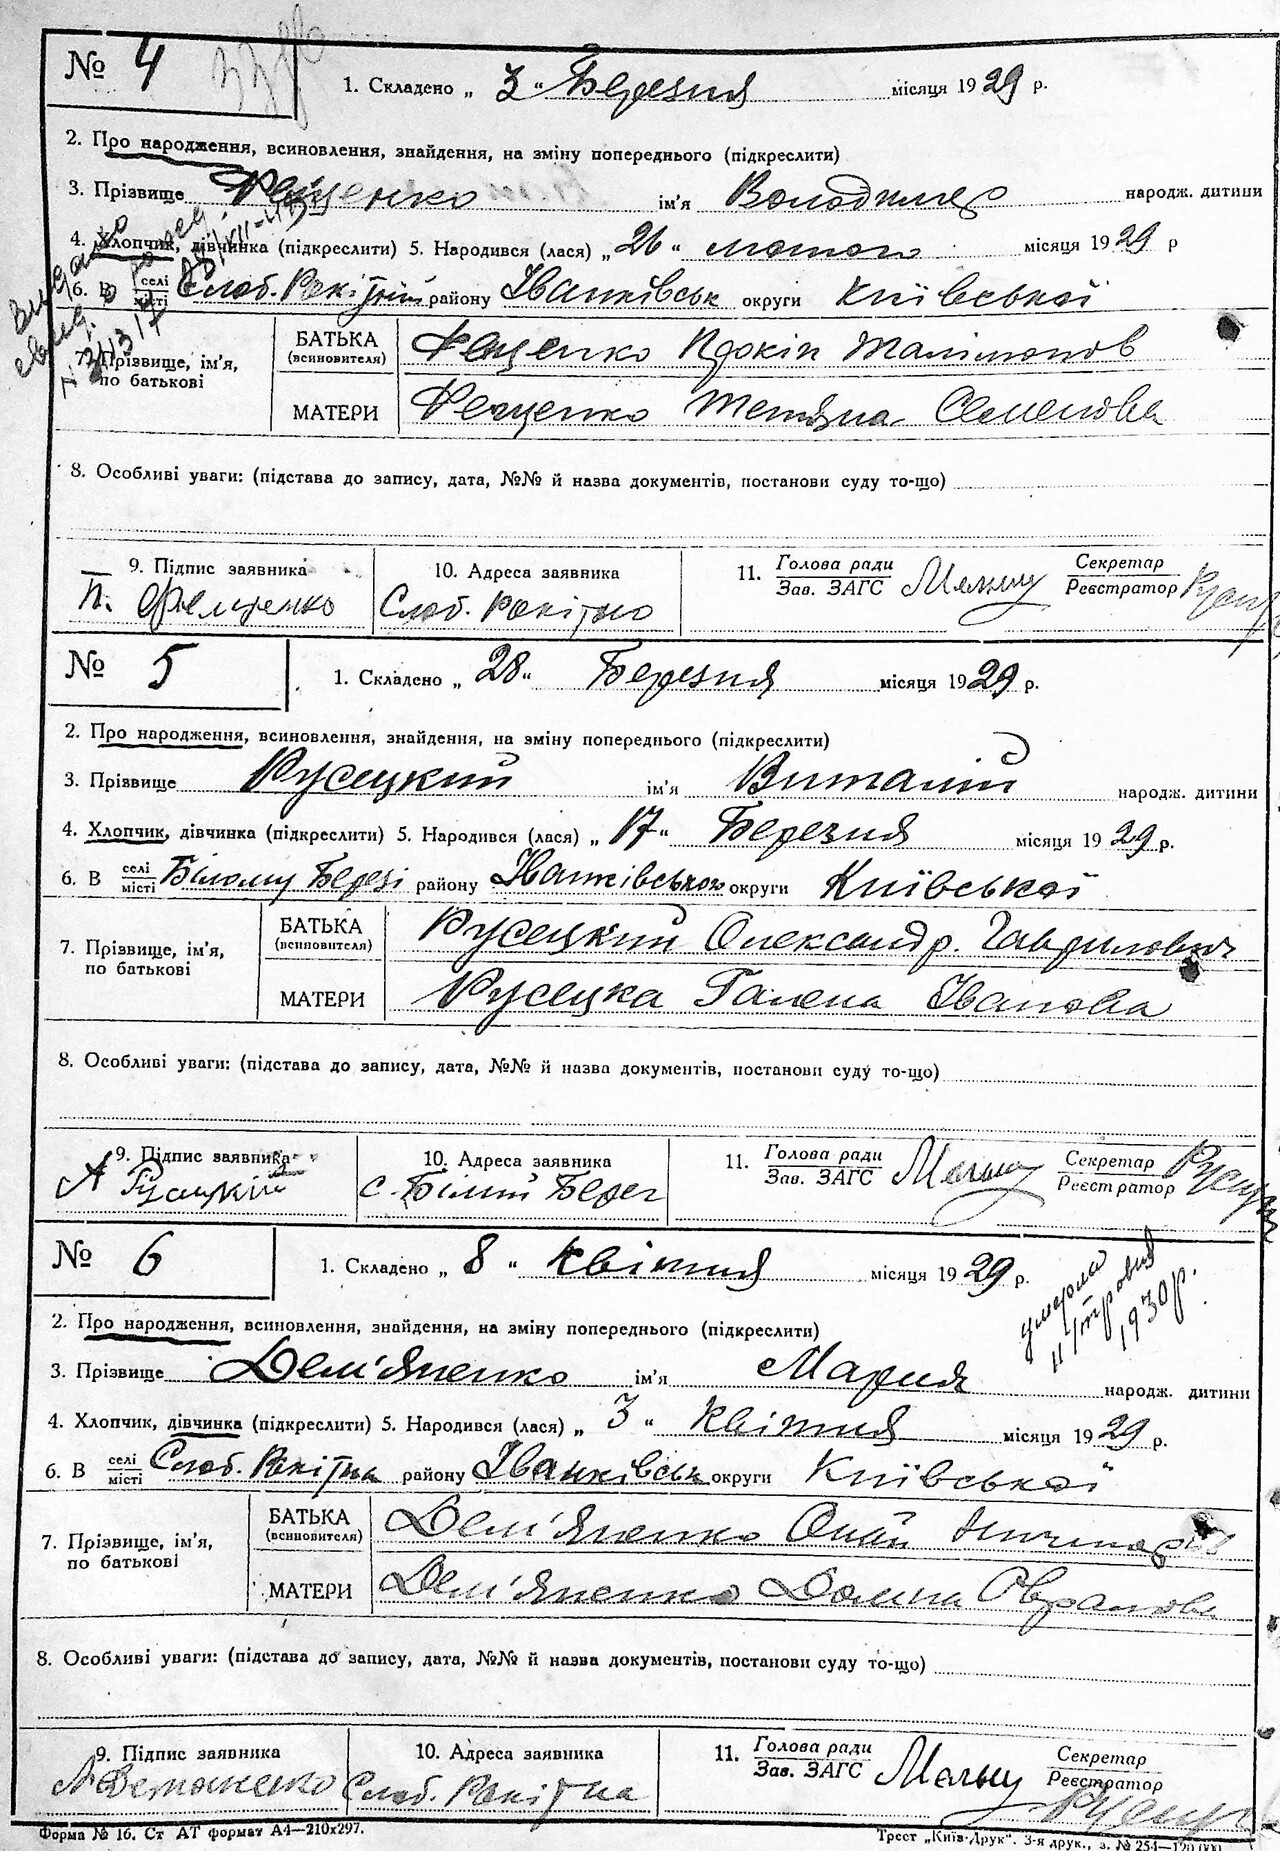 № 4
1. Складено „ 3 “ Березня місяця 1929 р.
2. Про народження, всиновлення, знайдення, на зміну попереднього (підкреслити)
3. Прізвище Фещенко ім'я Володимер народж. дитини
4. Хлопчик, дівчинка (підкреслити) 5. Народився (лася) „ 26 “ лютого місяця 1929 р
6. В селі/місті Слоб. Рокітній району Іванківськ округи Київської
Видано
7. Прізвище, ім'я, по батькові
БАТЬКА (всиновителя) Фещенко Прокіп
МАТЕРИ Фещенко Тетяна Семенова
8. Особливі уваги: (підстава до запису, дата, №№ й назва документів, постанови суду то-що)
9. Підпис заявника
П. Фещенко
10. Адреса заявника
Слоб. Рокітно
11. Голова ради/Зав. ЗАГС Секретар/Реєстратор
№ 5
1. Складено „ 28 “ Березня місяця 1929 р.
2. Про народження, всиновлення, знайдення, на зміну попереднього (підкреслити)
3. Прізвище Русецкий ім'я Виталій народж. дитини
4. Хлопчик, дівчинка (підкреслити) 5. Народився (лася) „ 17 “ Березня місяця 1929 р.
6. В селі/місті Білому Березі району Іванківського округи Київської
7. Прізвище, ім'я, по батькові
БАТЬКА (всиновителя) Русецкий Олександр. Гаврилович
МАТЕРИ Русецка Галена Іванова
8. Особливі уваги: (підстава до запису, дата, №№ й назва документів, постанови суду то-що)
9. Підпис заявника
А Русецкий
10. Адреса заявника
с. Білий Берег
11. Голова ради/Зав. ЗАГС Секретар/Реєстратор
№ 6
1. Складено „ 8 “ Квітня місяця 1929 р.
умерла
11/травня
1930 р.
2. Про народження, всиновлення, знайдення, на зміну попереднього (підкреслити)
3. Прізвище Дем'яненко ім'я Мария народж. дитини
4. Хлопчик, дівчинка (підкреслити) 5. Народився (лася) „ 3 “ Квітня місяця 1929 р.
6. В селі/місті Слоб. Рокітна району Іванківськ округи Київської
7. Прізвище, ім'я, по батькові
БАТЬКА (всиновителя) Дем'яненко
МАТЕРИ Дем'яненко Домна Оврамова
8. Особливі уваги: (підстава до запису, дата, №№ й назва документів, постанови суду то-що)
9. Підпис заявника
10. Адреса заявника
Слоб. Рокітна
11. Голова ради/Зав. ЗАГС Секретар/Реєстратор
Форма № 16. Ст АТ формат А4—210х297.
Трест „Київ-Друк“. 3-я друк., з. № 254—